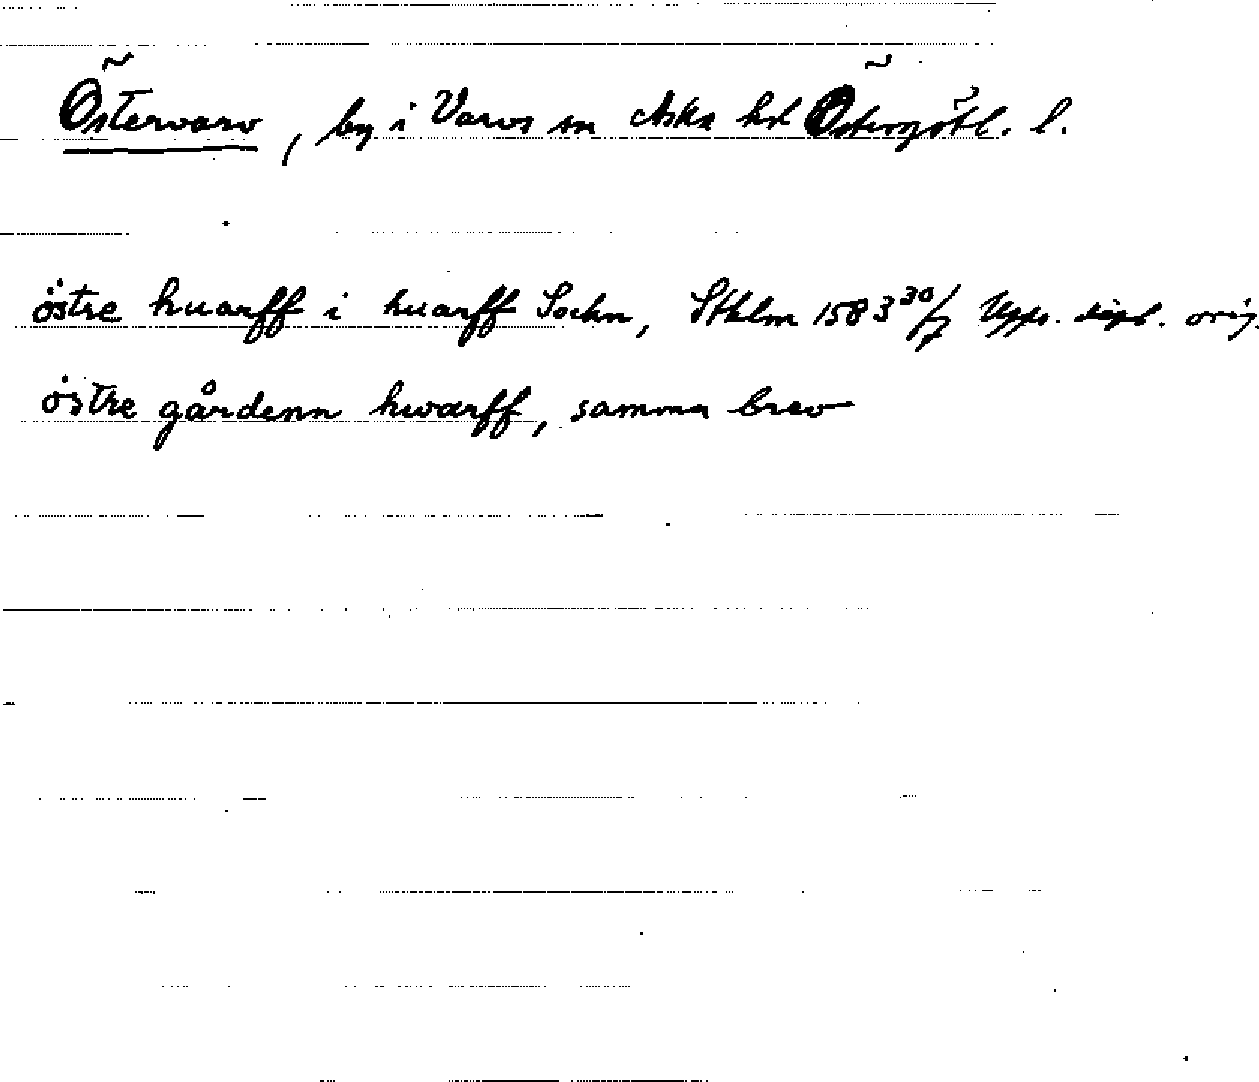 Östervarv, by i Varvs sn Aska hd Östergötl. l.
östre huarff i huarff Sochn, Sthlm 1583 30/7 Upps. dipl. orig.
östre gårdenn hwarff, samma brev